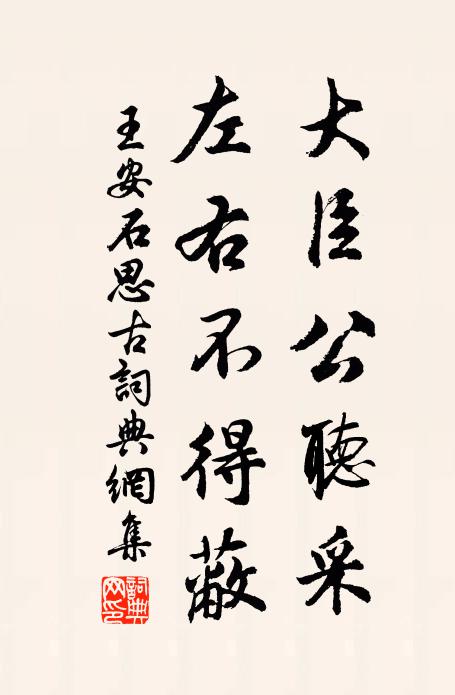 大臣公聽采
左右不得蔽
王安石思古詞典網集
詞典網印